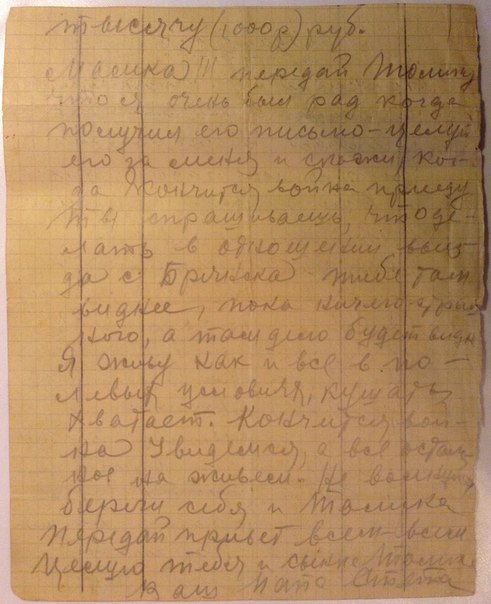 тысячу (1000р) руб.
Масика!!! передай Толику
что я очень был рад когда
получил его письмо - целуй
его за меня и скажи, ког-
да кончится война приеду
Ты спрашиваешь, что де-
лать в отношении выез-
да с Брянска - тебе там
виднее, пока ничего
а там дело будет видн
Я живу как и все в по-
левых условиях, кушать
хватает. Кончится вой-
на увидемся, а все осталь-
ное на живьем. Не волнуйся
береги себя и Толика
Передай привет всем-всем
Целую тебя и сынка Толика
Ваш папа